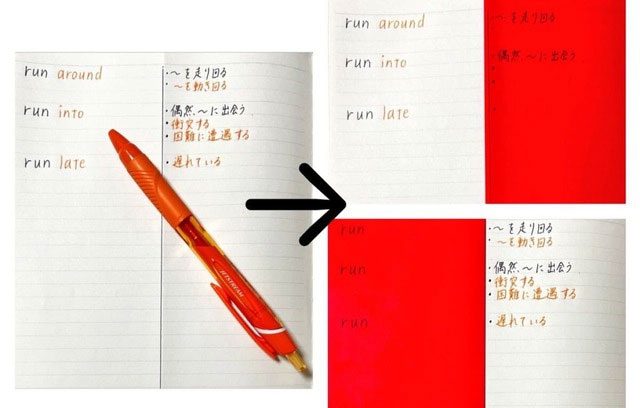 run around
・〜を走り回る
・〜を動き回る
run into
・偶然、〜に出会う
・衝突する
・困難に遭遇する
run late
・遅れている
JETSTREAM
run around
・〜を走り回る
run into
・偶然、〜に出会う
run late
run
・〜を走り回る
・〜を動き回る
run
・偶然、〜に出会う
・衝突する
・困難に遭遇する
run
・遅れている